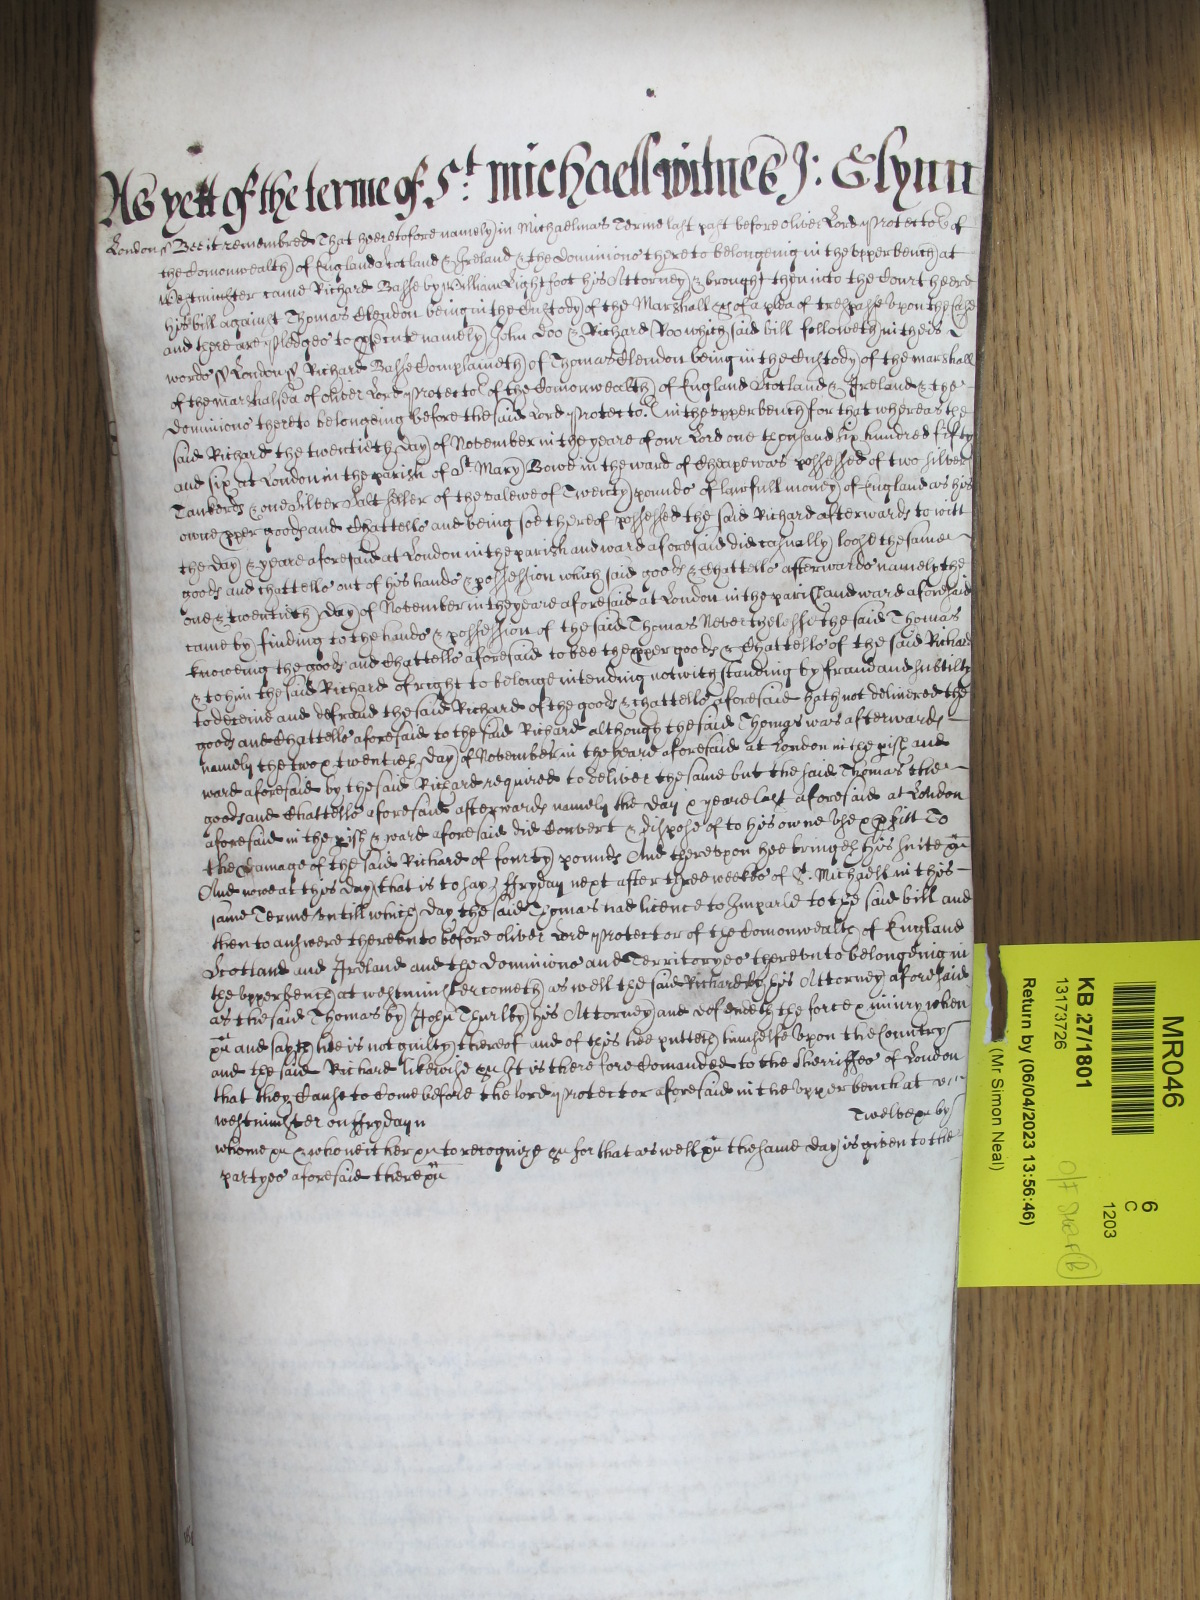 As yett of the terme of St. Michaell witnes J: Glynn
London ss Bee it remembred That heeretofore namely in Michaelmas Terme last past before oliver Lord Protector of
the Comonwealth of England Scotland & Ireland & the Dominions thereto belongeing in the upper bench at
Westminster came Richard Basse by William Lightfoot his Attorney & brought then into the Court heere
his bill against Thomas Clendon being in the Custody of the Marshall &c of a plea of trespasse upon the Case
and there are Pledges to prosecute namely John Doo & Richard Roo which said bill followeth in theis
words ss London ss Richard Basse Complaineth of Thomas Clendon being in the Custody of the marshall
of the marshalsea of oliver Lord Protector of the Comonwealth of England Scotland & Ireland & the
Dominions thereto belongeing before the said Lord Protector in the upper bench for that whereas the
said Richard the twentieth day of November in the yeare of our Lord one thousand six hundred fifty
and six at London in the parish of St Mary Bowe in the ward of Cheape was possessed of two silver
Tankerds & one silver Salt seller of the valewe of Twenty pounds of lawfull money of England as his
owne pper goods and Chattells and being soe thereof possessed the said Richard afterwards to witt
the day & yeare aforesaid at London in the parish and ward aforesaid did casually loose the same
goods and chattells out of his hands & possession which said goods & Chattells afterwards namely the
one & twentieth day of November in the yeare aforesaid at London in the parish and ward aforesaid
came by finding to the hands & possession of the said Thomas Neverthelesse the said Thomas
knoweing the goods and Chattells aforesaid to bee the pper goods & Chattells of the said Richard
& to him the said Richard of right to belonge intending notwithstanding by fraud and subtilty
to deceive and defraud the said Richard of the goods & chattells aforesaid hath not delivered the
goods and Chattells aforesaid to the said Richard although the said Thomas was afterwards
namely the two & twentieth day of November in the yeare aforesaid at London in the pish and
ward aforesaid by the said Richard required to deliver the same but the said Thomas the
goods and Chattells aforesaid afterwards namely the day & yeare last aforesaid at London
aforesaid in the pish & ward aforesaid did Convert & dispose of to his owne use & pfitt To
the damage of the said Richard of fourty pounds And thereupon hee bringeth his suite &c
And nowe at this day that is to say ffryday next after three weekes of St. Michaell in this
same Terme untill which day the said Thomas had licence to Imparle to the said bill and
then to answere thereunto before oliver Lord Protector of the Comonwealth of England
Scotland and Ireland and the Dominions and Territoryes thereunto belongeing in
the upper bench at westminster cometh as well the said Richard by his Attorney aforesaid
as the said Thomas by John Thurlby his Attorney and defendeth the force & iniury when
&c and sayth hee is not guilty thereof and of this hee putteth himselfe upon the Country
and the said Richard likewise &c It is therefore Comanded to the Sherriffes of London
that they Cause to Come before the lord Protector aforesaid in the upper bench at
westminster on ffryday n Twelve &c by
whome &c & whoe neither &c to recognize &c for that as well &c the same day is given to the
partyes aforesaid there &c
MR046
KB 27/1801
13173726
Return by (06/04/2023 13:56:46)
(Mr Simon Neal)
6
C
1203